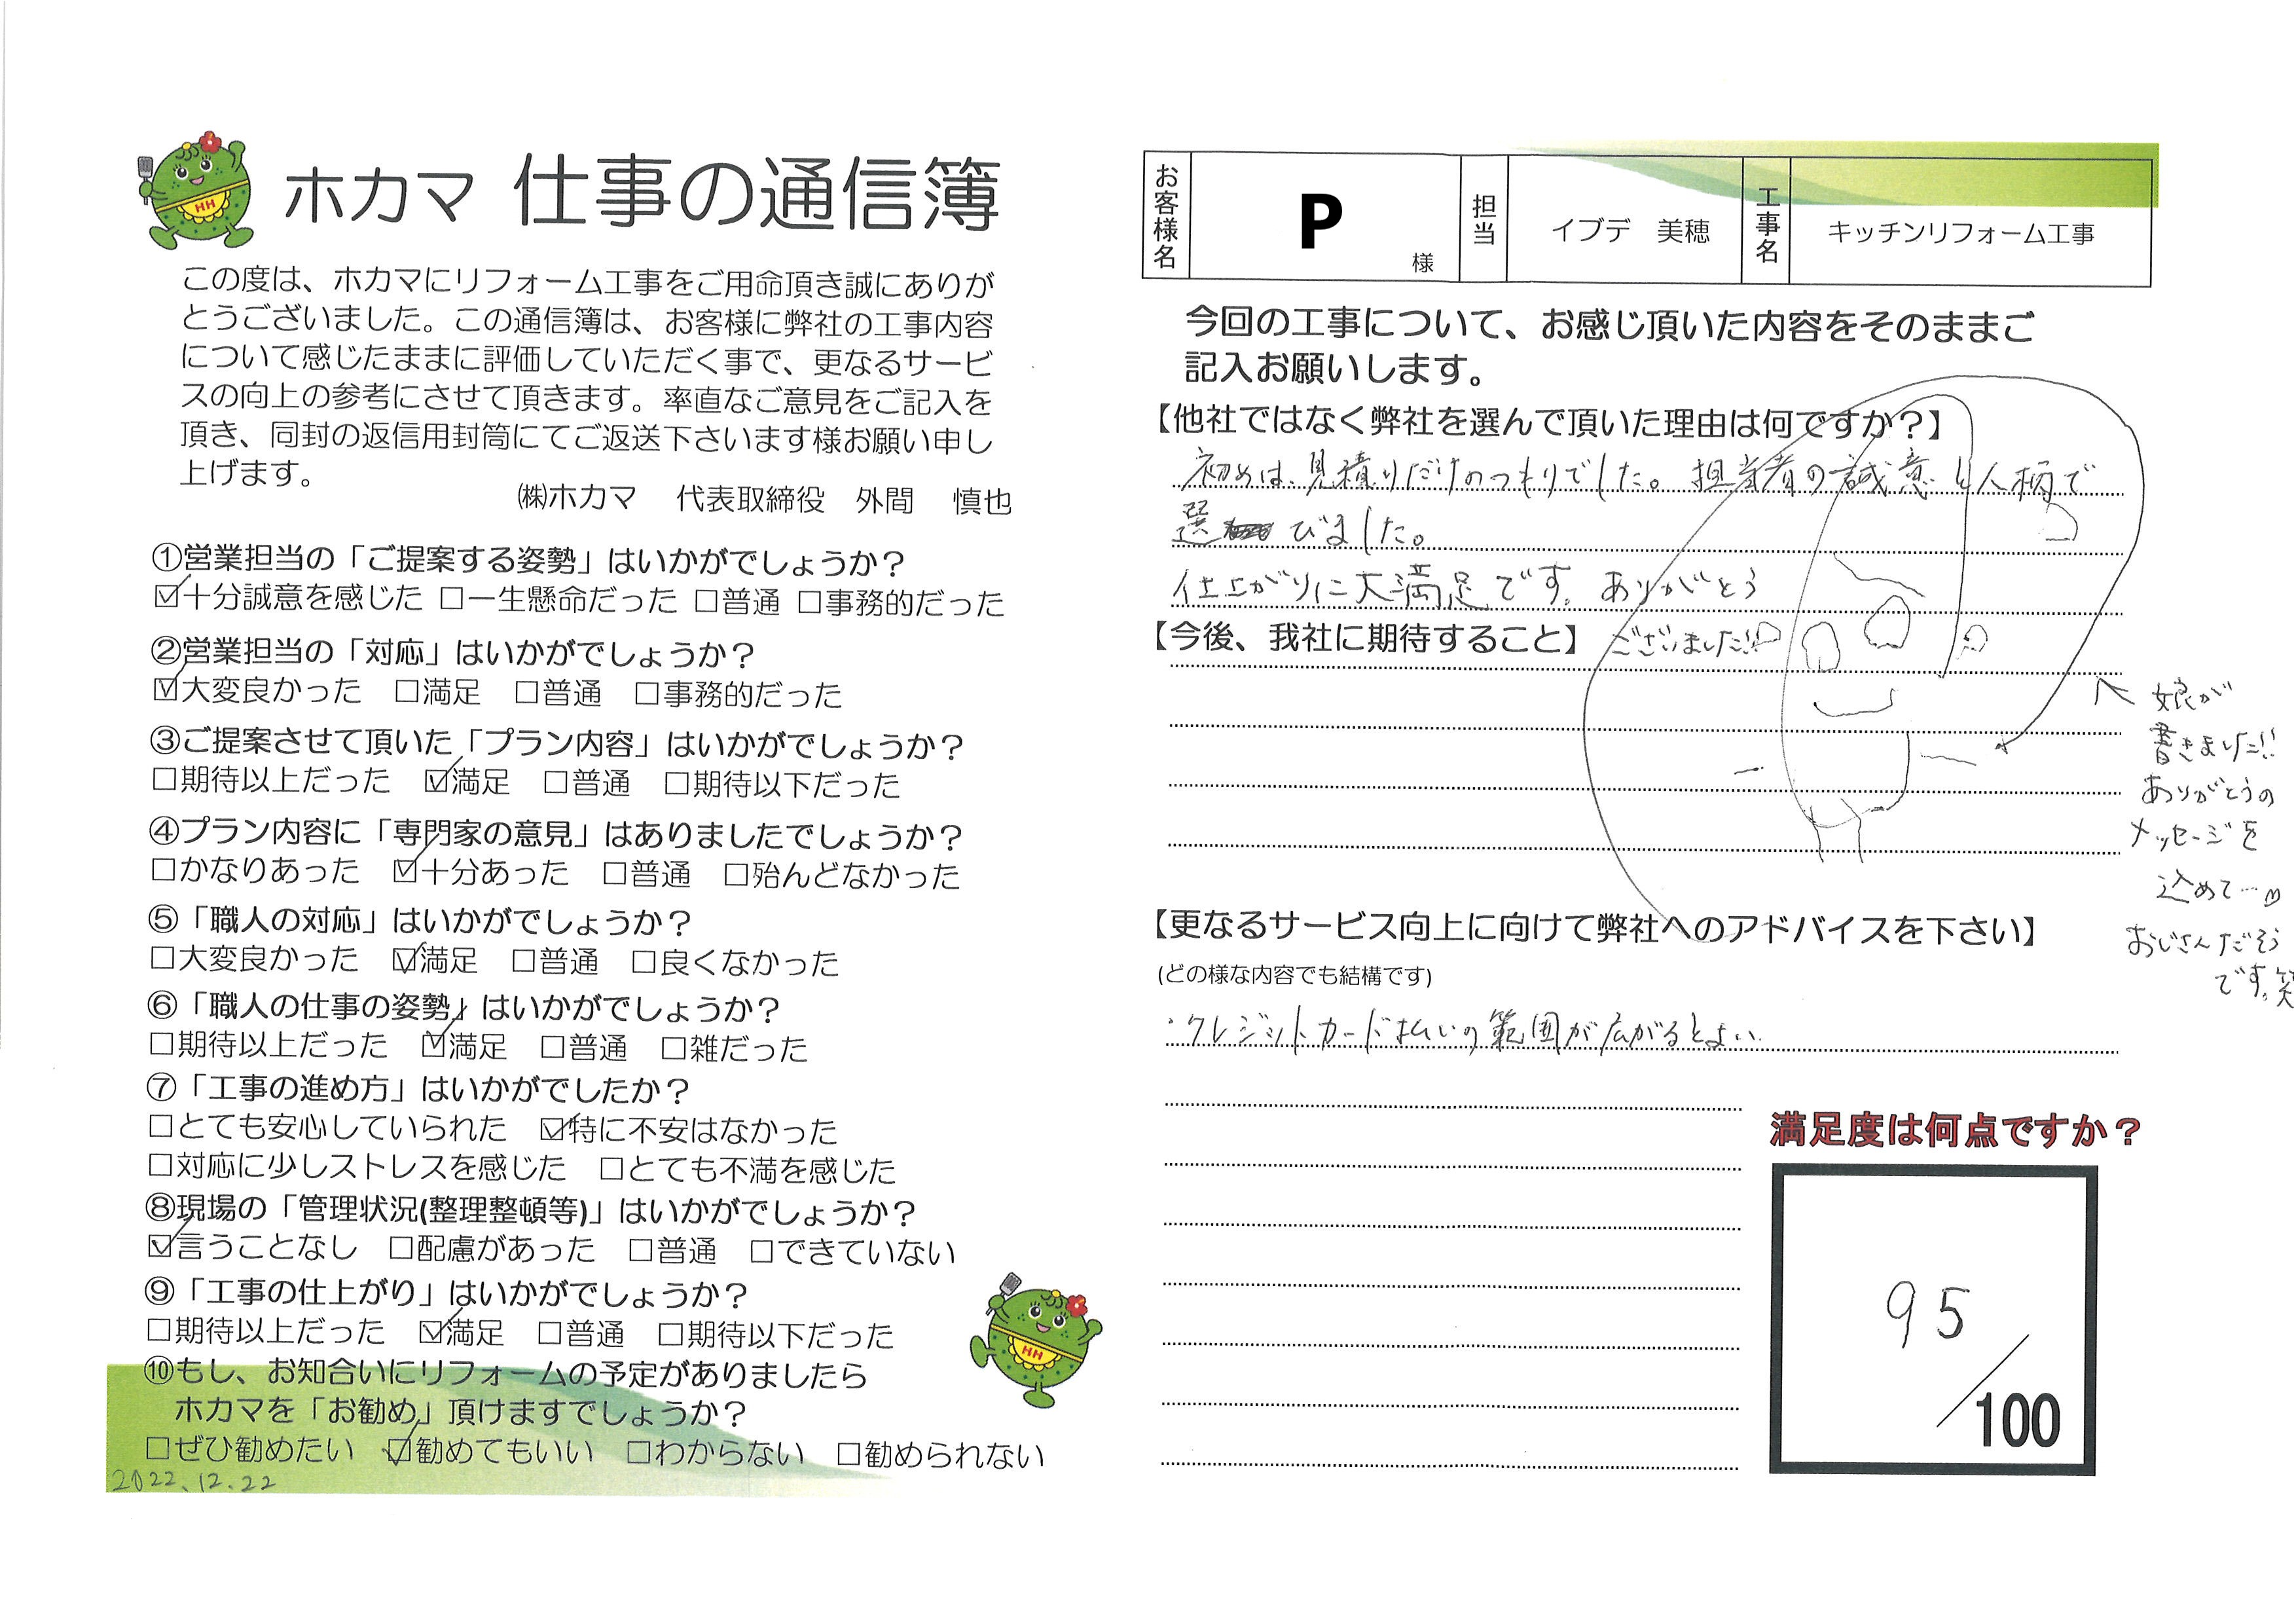 ホカマ 仕事の通信簿
この度は、ホカマにリフォーム工事をご用命頂き誠にありが
とうございました。この通信簿は、お客様に弊社の工事内容
について感じたままに評価していただく事で、更なるサービ
スの向上の参考にさせて頂きます。率直なご意見をご記入を
頂き、同封の返信用封筒にてご返送下さいます様お願い申し
上げます。
㈱ホカマ 代表取締役 外間 慎也
①営業担当の「ご提案する姿勢」はいかがでしょうか？
☑十分誠意を感じた □一生懸命だった □普通 □事務的だった
②営業担当の「対応」はいかがでしょうか？
☑大変良かった □満足 □普通 □事務的だった
③ご提案させて頂いた「プラン内容」はいかがでしょうか？
□期待以上だった ☑満足 □普通 □期待以下だった
④プラン内容に「専門家の意見」はありましたでしょうか？
□かなりあった ☑十分あった □普通 □殆んどなかった
⑤「職人の対応」はいかがでしょうか？
□大変良かった ☑満足 □普通 □良くなかった
⑥「職人の仕事の姿勢」はいかがでしょうか？
□期待以上だった ☑満足 □普通 □雑だった
⑦「工事の進め方」はいかがでしたか？
□とても安心していられた ☑特に不安はなかった
□対応に少しストレスを感じた □とても不満を感じた
⑧現場の「管理状況(整理整頓等)」はいかがでしょうか？
☑言うことなし □配慮があった □普通 □できていない
⑨「工事の仕上がり」はいかがでしょうか？
□期待以上だった ☑満足 □普通 □期待以下だった
⑩もし、お知合いにリフォームの予定がありましたら
ホカマを「お勧め」頂けますでしょうか？
□ぜひ勧めたい ☑勧めてもいい □わからない □勧められない
2022.12.22
HH
HH
お客様名 P 様 担当 イブデ 美穂 工事名 キッチンリフォーム工事
今回の工事について、お感じ頂いた内容をそのままご
記入お願いします。
【他社ではなく弊社を選んで頂いた理由は何ですか？】
初めは、見積りだけのつもりでした。担当者の誠意と人柄で
選びました。
仕上がりに大満足です。ありがとう
【今後、我社に期待すること】 ございました!!
娘が
書きました!!
ありがとうの
メッセージを
込めて…♡
おじさんだそう
です。笑
【更なるサービス向上に向けて弊社へのアドバイスを下さい】
(どの様な内容でも結構です)
・クレジットカード払いの範囲が広がるとよい。
満足度は何点ですか？
95
/100